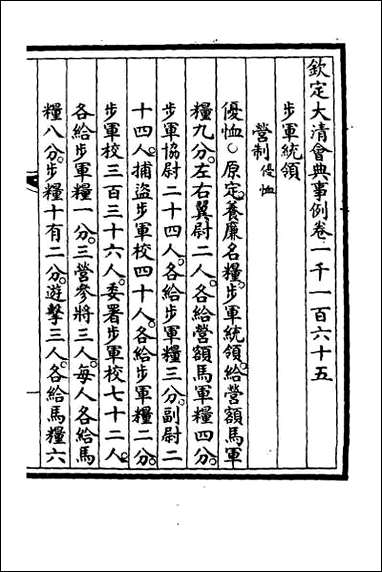 欽定大清會典事例卷一千一百六十五
步軍統領
營制 優恤
優恤○原定養廉名糧。步軍統領。給營額馬軍
糧九分。左右翼尉二人。各給營額馬軍糧四分。
步軍協尉二十四人。各給步軍糧三分。副尉二
十四人。捕盜步軍校四十人。各給步軍糧二分。
步軍校三百三十六人。委署步軍校七十二人。
各給步軍糧一分。三營參將三人。每人各給馬
糧八分。步糧十有二分。遊擊三人。各給馬糧六